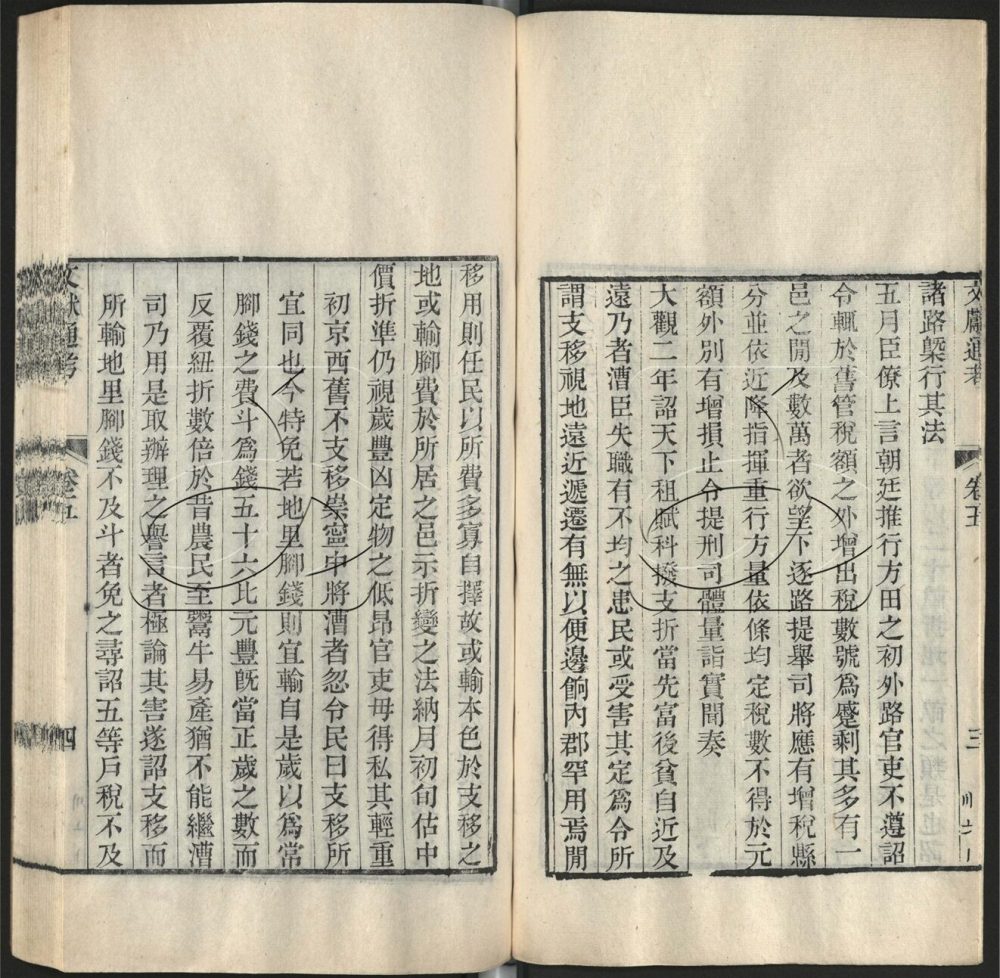 文獻通考 卷五 三
諸路槩行其法
五月臣僚上言朝廷推行方田之初外路官吏不遵詔
令輒於舊管稅額之外增出稅數號為蹙剩其多有一
邑之間及數萬者欲望下逐路提舉司將應有增稅縣
分並依近降指揮重行方量依條均定稅數不得於元
額外別有增損止令提刑司體量詣實聞奏
大觀二年詔天下租賦科撥支折當先富後貧自近及
遠乃者漕臣失職有不均之患民或受害其定為令所
謂支移視地遠近遞遷有無以便邊餉內郡罕用焉閒
移用則任民以所費多寡自擇故或輸本色於支移之
地或輸腳費於所居之邑示折變之法納月初旬估中
價折準仍視歲豐凶定物之低昂官吏毋得私其輕重
初京西舊不支移崇寧中將漕者忽令民曰支移所
宜同也今特免若地里腳錢則宜輸自是歲以為常
腳錢之費斗為錢五十六比元豐既當正歲之數而
反覆紐折數倍於昔農民至鬻牛易產猶不能繼漕
司乃用是取辦理之譽言者極論其害遂詔支移而
所輸地里腳錢不及斗者免之尋詔五等戶稅不及
文獻通考 卷五 四